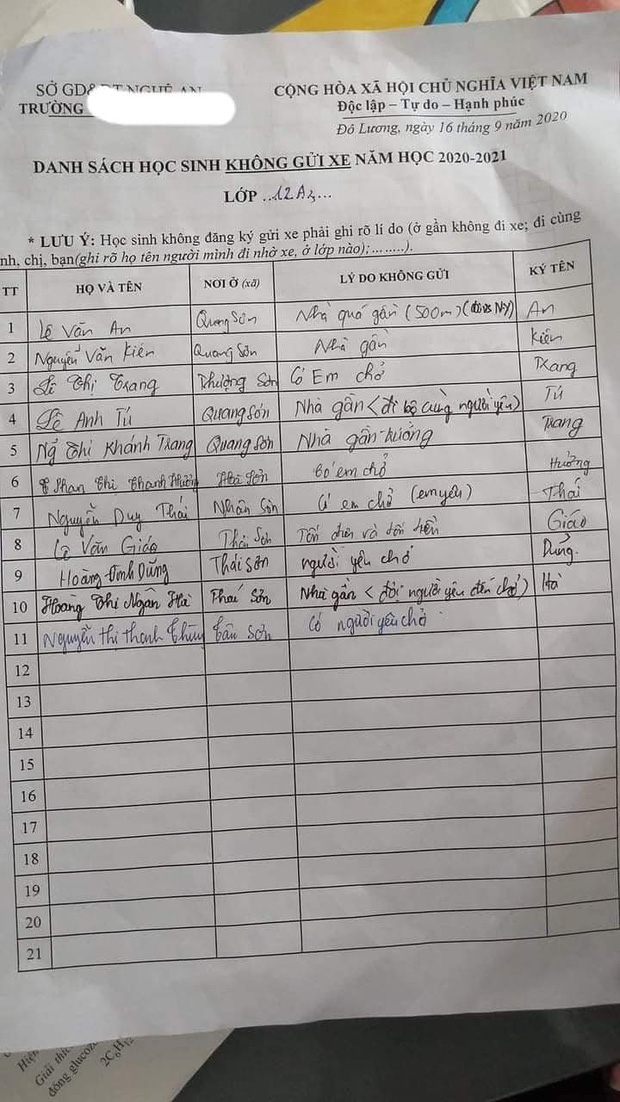 SỞ GD&ĐT NGHỆ AN
TRƯỜNG
CỘNG HÒA XÃ HỘI CHỦ NGHĨA VIỆT NAM
Độc lập – Tự do – Hạnh phúc
Đô Lương, ngày 16 tháng 9 năm 2020
DANH SÁCH HỌC SINH KHÔNG GỬI XE NĂM HỌC 2020-2021
LỚP ...12A3...
* LƯU Ý: Học sinh không đăng ký gửi xe phải ghi rõ lí do (ở gần không đi xe; đi cùng
nh, chị, bạn(ghi rõ họ tên người mình đi nhờ xe, ở lớp nào);........).
TT HỌ VÀ TÊN NƠI Ở (xã) LÝ DO KHÔNG GỬI KÝ TÊN
1 Lê Văn An Quang Sơn Nhà quá gần (500m) An
2 Nguyễn Văn Kiên Quang Sơn Nhà gần Kiên
3 Lê Thị Trang Thượng Sơn Có Em chở Trang
4 Lê Anh Tú Quang Sơn Nhà gần < đi bộ cùng người yêu) Tú
5 Ng Thi Khánh Trang Quang Sơn Nhà gần Trang
6 Phan Thi Thanh Hường Đà Sơn Có em chở Hường
7 Nguyễn Duy Thái Nhân Sơn Có em chở (em yêu) Thái
8 Lê Văn Giáo Thái Sơn Tốn điện và tốn tiền Giáo
9 Hoàng Đình Dũng Thái Sơn người yêu chở Dũng.
10 Hoàng Thi Ngân Hà Thái Sơn Nhà gần < đợi người yêu đến chở) Hà
11 Nguyễn thị thanh Thùy Tân Sơn Có người yêu chở
12
13
14
15
16
17
18
19
20
21
Giải thíc
đồng glucoz